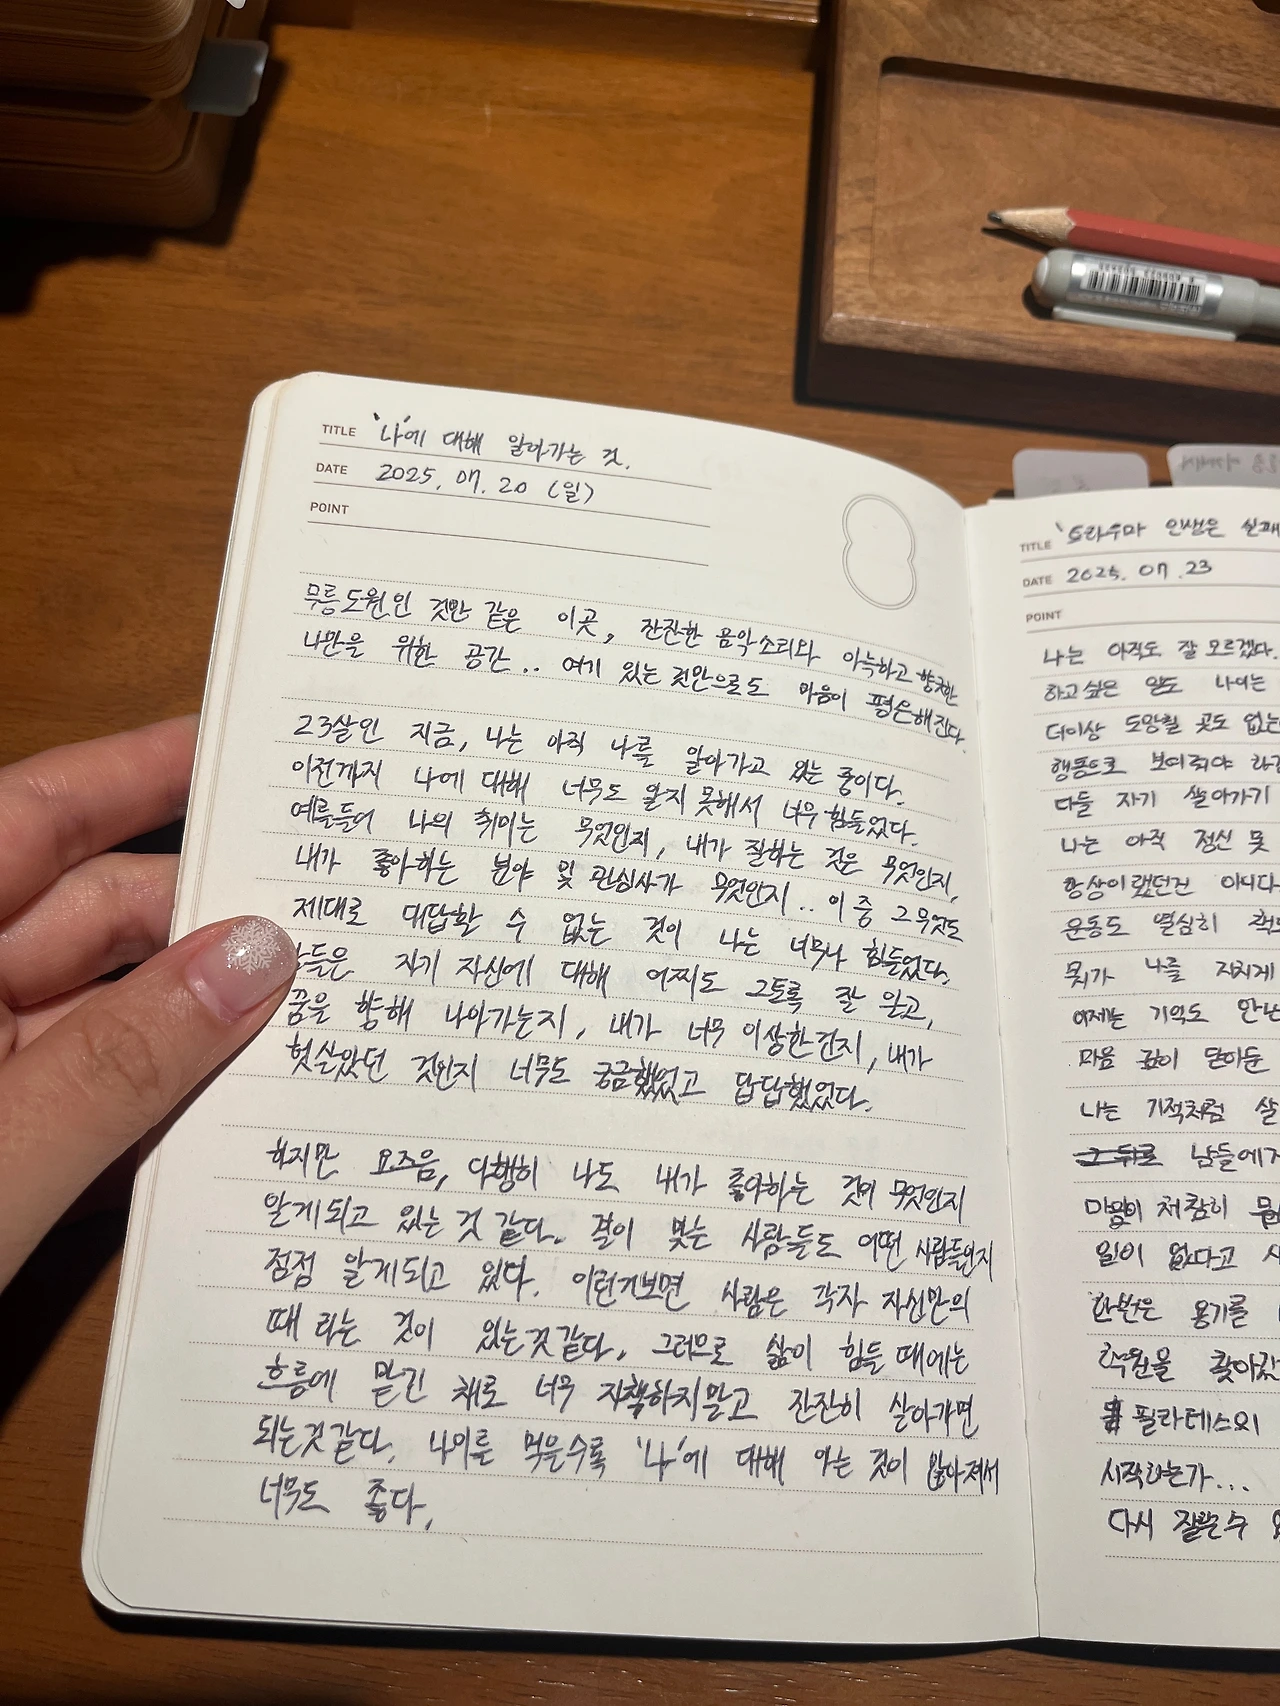 TITLE '나'에 대해 알아가는 것.
DATE 2025. 07. 20 (일)
POINT
무릉도원인 것만 같은 이곳, 잔잔한 음악소리와 아늑하고 향긋한
나만을 위한 공간.. 여기 있는 것만으로도 마음이 평온해진다.
23살인 지금, 나는 아직 나를 알아가고 있는 중이다.
이전까지 나에 대해 너무도 알지 못해서 너무 힘들었다.
예를들어 나의 취미는 무엇인지, 내가 잘하는 것은 무엇인지,
내가 좋아하는 분야 및 관심사가 무엇인지.. 이 중 그 무엇도
제대로 대답할 수 없는 것이 나는 너무나 힘들었다.
들은 자기 자신에 대해 어찌도 그토록 잘 알고,
꿈을 향해 나아가는지, 내가 너무 이상한건지, 내가
헛살았던 것인지 너무도 궁금했었고 답답했었다.
하지만 요즈음, 다행히 나도 내가 좋아하는 것이 무엇인지
알게되고 있는 것 같다. 결이 맞는 사람들도 어떤 사람들인지
점점 알게되고 있다. 이런거보면 사람은 각자 자신만의
때 라는 것이 있는것같다. 그러므로 삶이 힘들 때에는
흐름에 맡긴 채로 너무 자책하지말고 잔잔히 살아가면
되는것같다. 나이를 먹을수록 '나'에 대해 아는 것이 많아져서
너무도 좋다.
TITLE '드라우마 인생은 실패
DATE 2025. 07. 23
POINT
나는 아직도 잘 모르겠다.
하고싶은 일도 나에는
더이상 도망칠 곳도 없는
행동으로 보여줘야
다들 자기 살아가기
나는 아직 정신 못
항상이랬던건 아니다
운동도 열심히
뭐가 나를 지치게
이제는 기억도 안난
마음 깊이 담아둔
나는 기적처럼 살
그 뒤로 남들에게
일이 없다고
한번은 용기를
학원을 찾아갔
필라테스의
시작하는가...
다시 잘할수